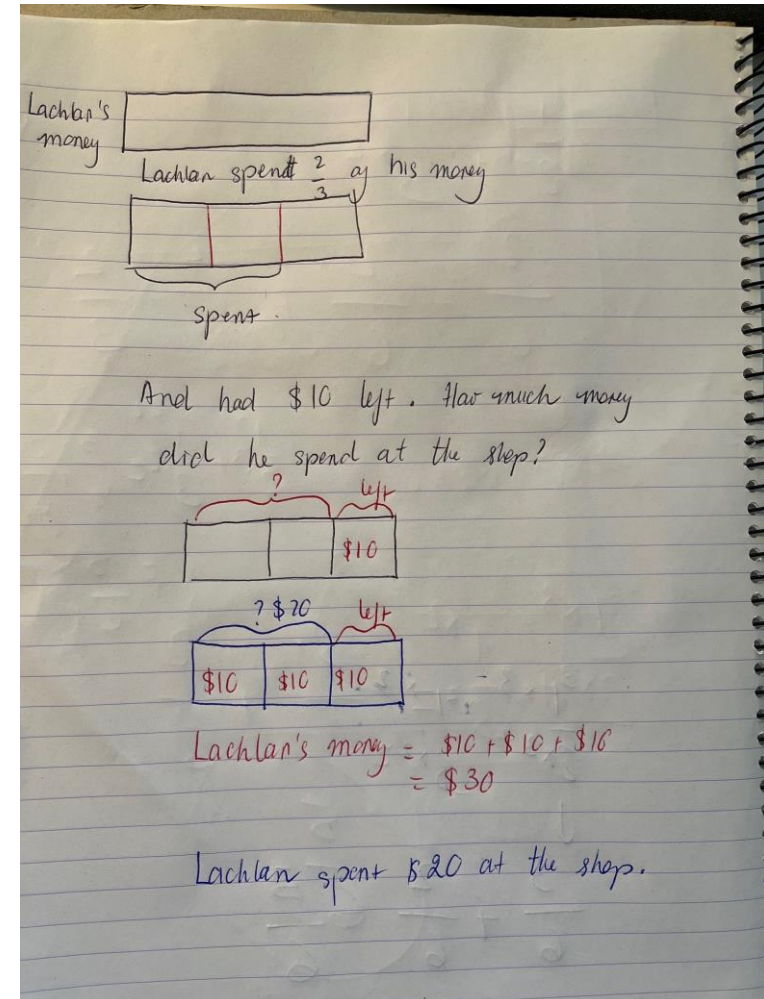 Lachlan's
money
Lachlan spent 2/3 of his money
Spent.
And had $10 left. How much money
did he spend at the shop?
? left
$10
? $20 left
$10 $10 $10
Lachlan's money = $10 + $10 + $10
= $30
Lachlan spent $20 at the shop.